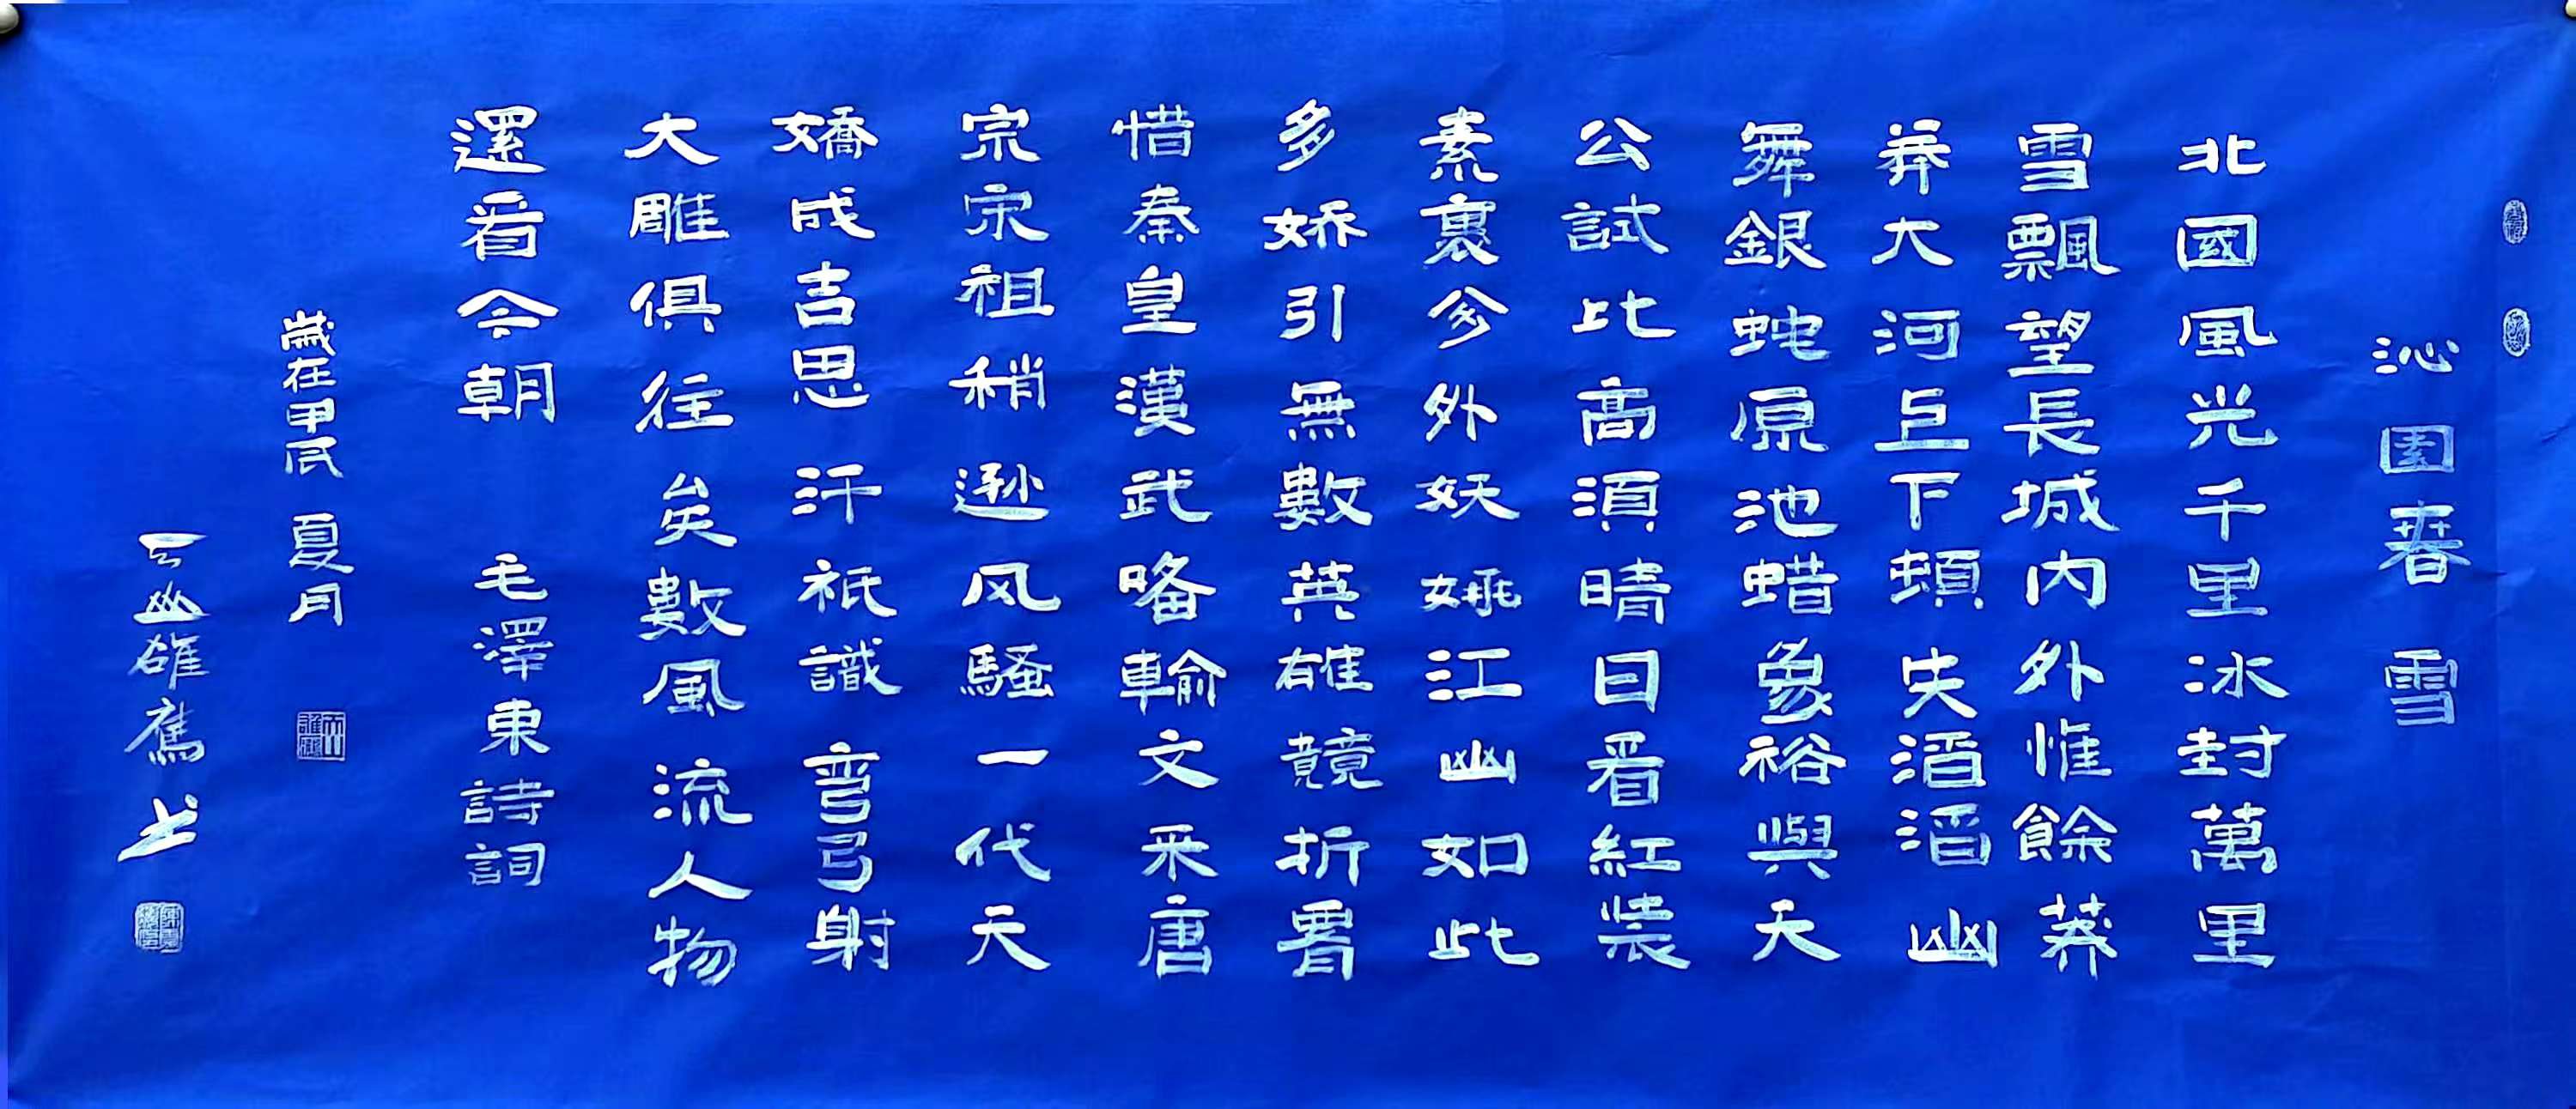 沁園春 雪
北國風光千里冰封萬里
雪飄望長城内外惟餘莽
莽大河上下頓失滔滔山
舞銀蛇原池蜡象裕與天
公試比高須晴日看紅裝
素裹分外妖娆江山如此
多娇引無數英雄競折署
惜秦皇漢武略輸文采唐
宗宋祖稍遜风騷一代天
嬌成吉思汗祇識弯弓射
大雕俱往矣數風流人物
還看今朝 毛澤東詩詞
歲在甲辰 夏月
天山雄鷹书